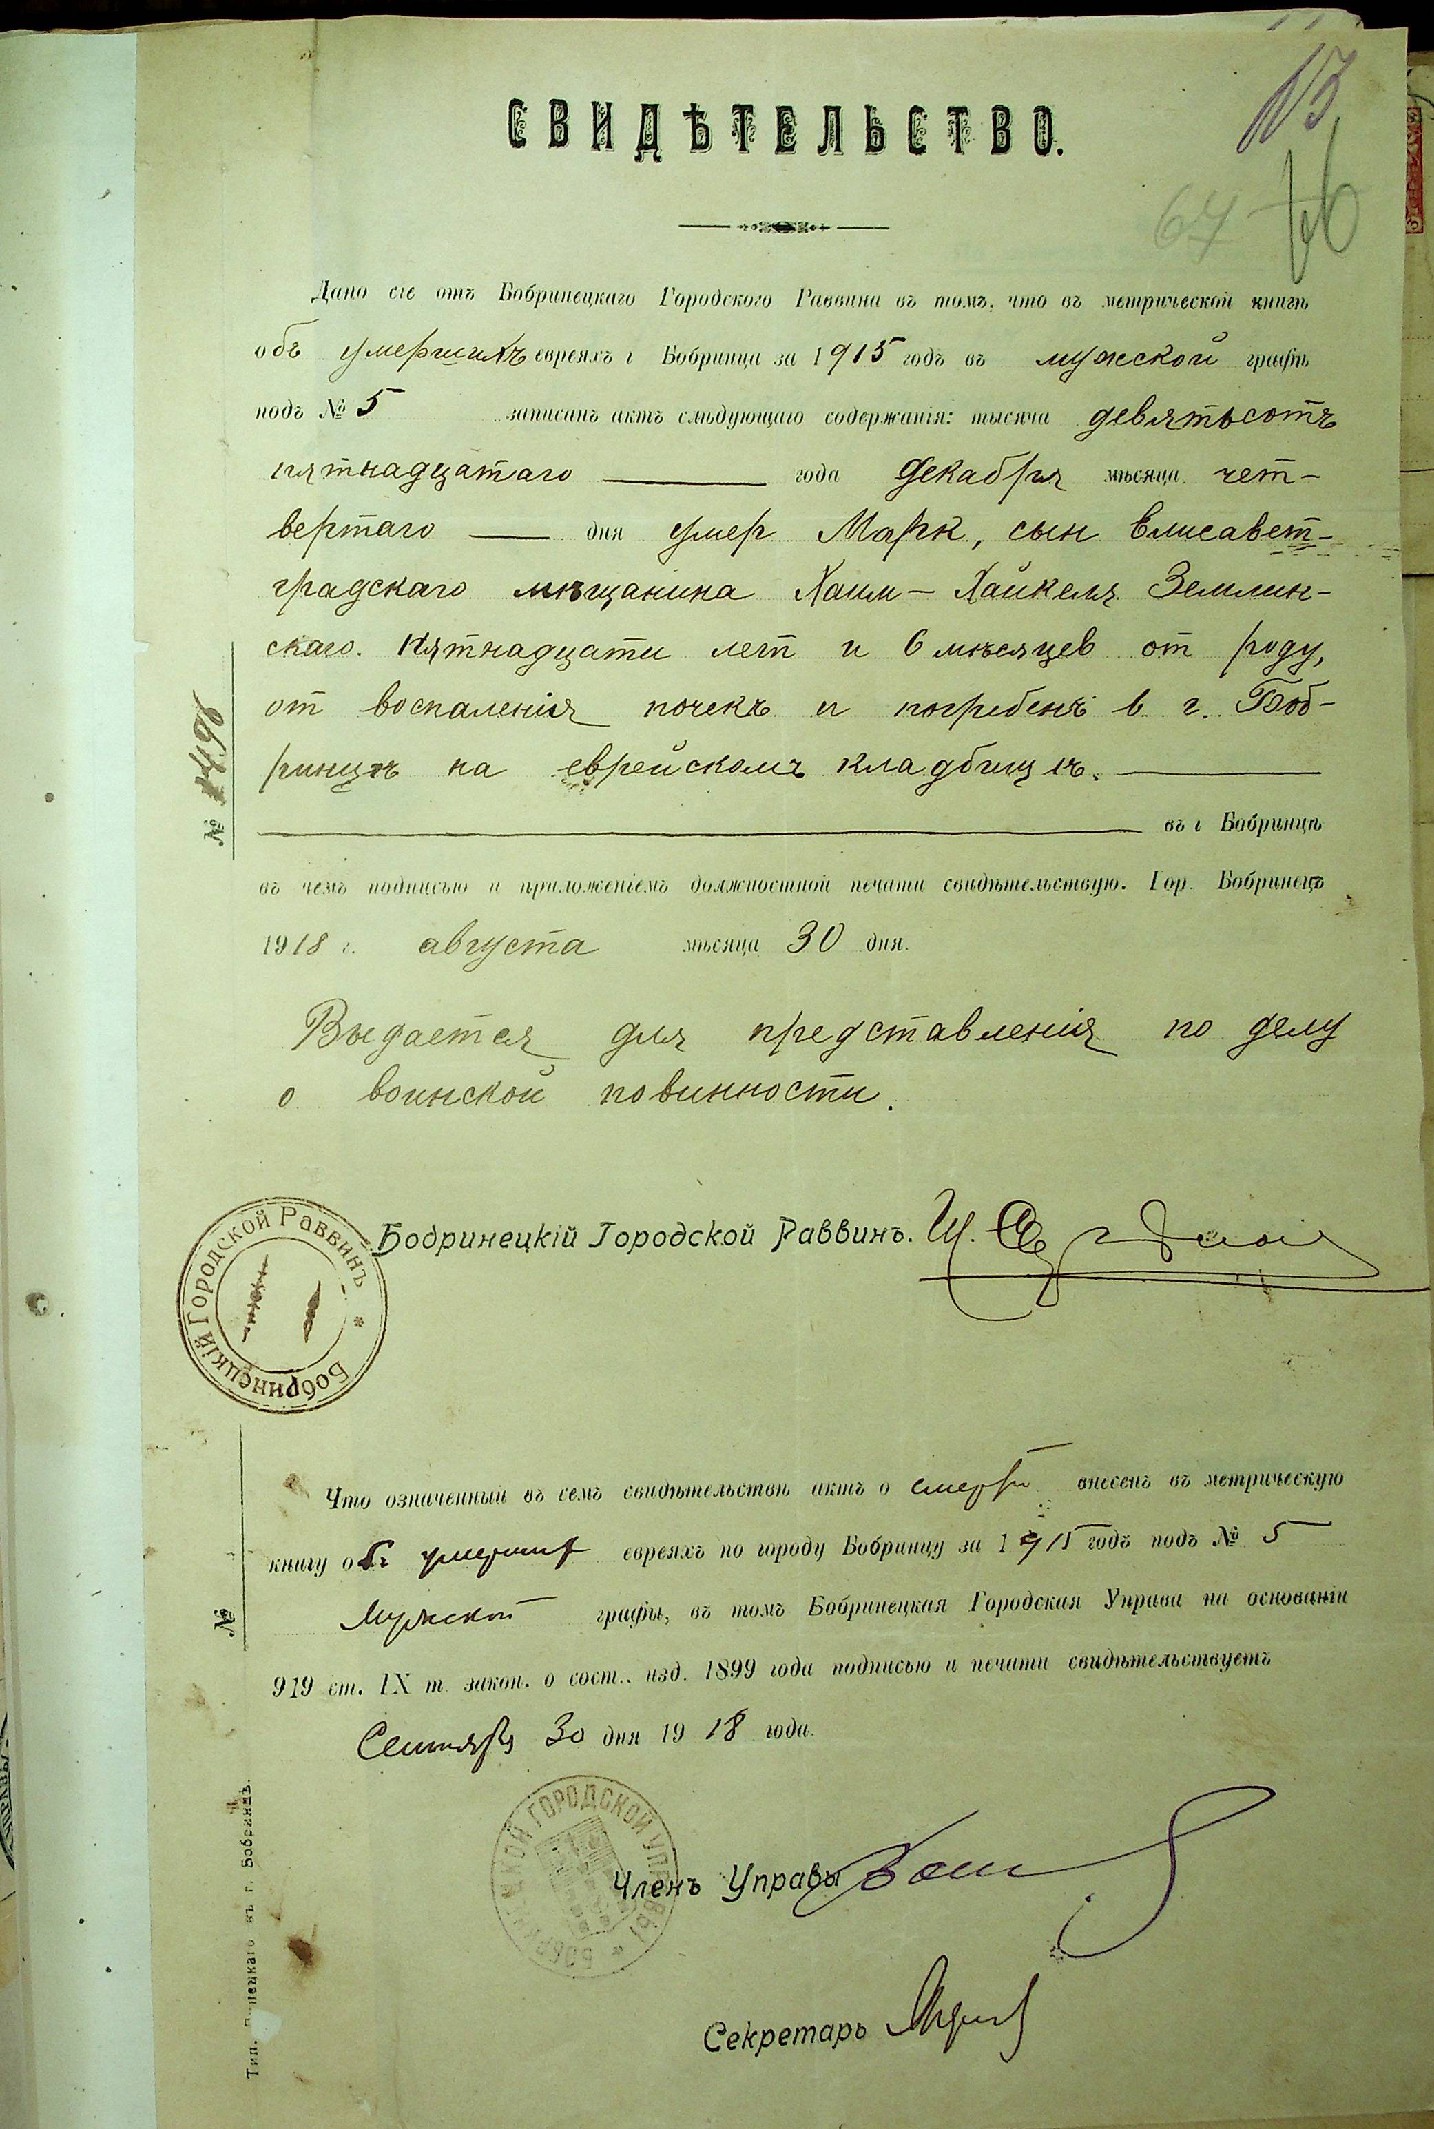 13
67 76
СВИДѢТЕЛЬСТВО.
Дано сіе отъ Бобринецкаго Городского Раввина въ томъ, что въ метрической книгѣ
объ умершихъ евреяхъ г Бобринца за 1915 годъ въ мужской графѣ
подъ № 5 записанъ актъ слѣдующаго содержанія: тысяча девятьсотъ
пятнадцатаго года декабря мѣсяца чет-
вертаго дня умер Марк, сын Елисавет-
градскаго мѣщанина Хаим-Хайкеля Землин-
скаго. Пятнадцати лет и 6 мѣсяцев от роду,
от воспаленія почекъ и погребенъ в г. Боб-
ринцѣ на еврейскомъ кладбищѣ.
въ г Бобринцѣ
въ чемъ подписью и приложеніемъ должностной печати свидѣтельствую. Гор. Бобринецъ
1918 г. августа мѣсяца 30 дня.
Выдается для представленія по делу
о воинской повинности.
№ 1496
Бобринецкій Городской Раввинъ.
Бобринецкій Городской Раввинъ
Что означенный въ семъ свидѣтельствѣ актъ о смерти внесенъ въ метрическую
книгу объ умерших евреяхъ по городу Бобринцу за 1915 годъ подъ № 5
Мужской графы, въ томъ Бобринецкая Городская Управа на основаніи
919 ст. IX т. закон. о сост.. изд. 1899 года подписью и печати свидѣтельствуетъ
Сентября 30 дня 1918 года.
№
Членъ Управы
ГОРОДСКОЙ УПРАВЫ
Секретарь
Тип. въ г. Бобринцѣ.